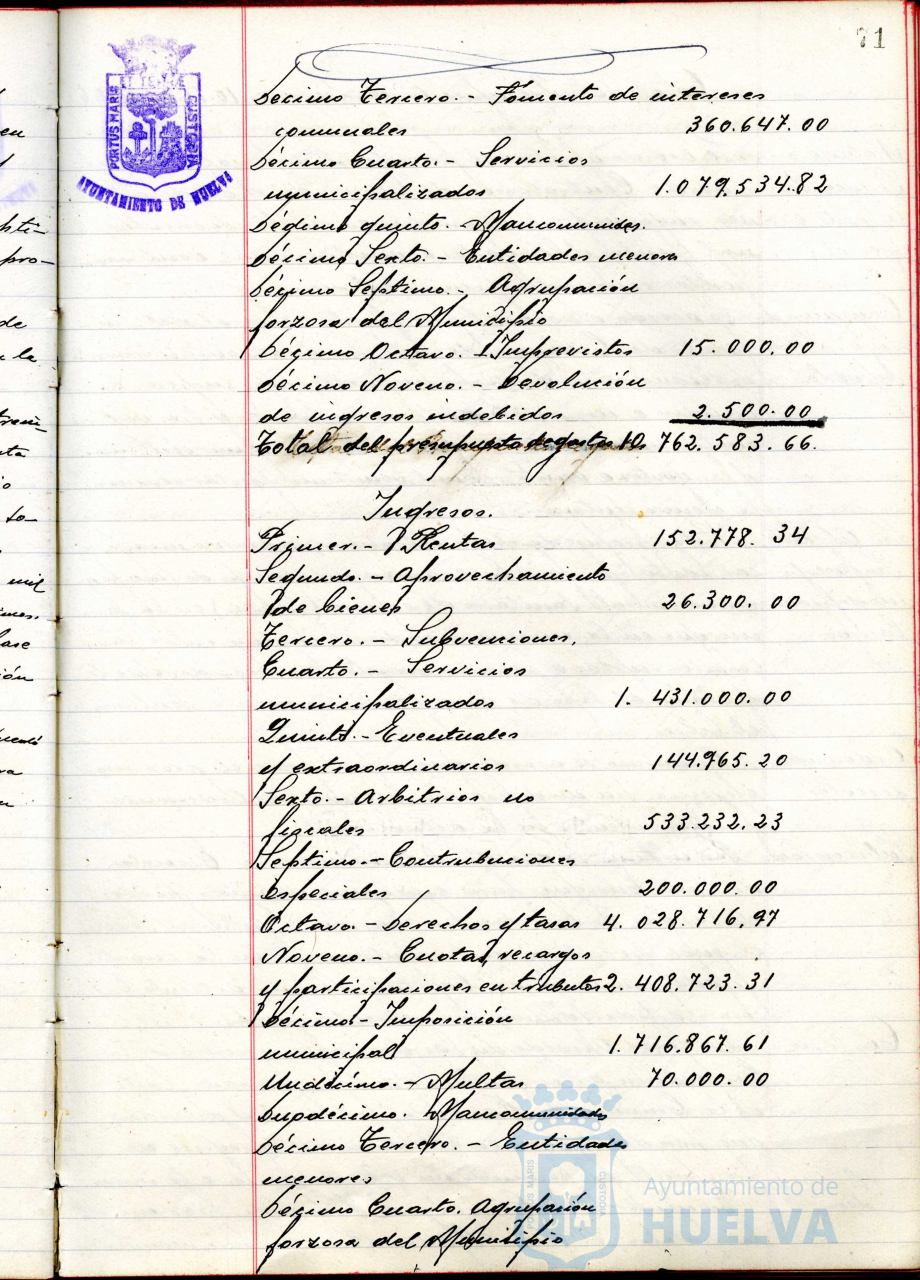 71
PORTUS MARIS ET TERRE CUSTODIA
AYUNTAMIENTO DE HUELVA
Decimo Tercero.- Fomento de intereses
comunales 360.647.00
Décimo Cuarto.- Servicios
municipalizados 1.079.534.82
Décimo quinto.- Mancomunides.
Décimo Sexto.- Entidades menores
Décimo Septimo.- Agrupación
forzosa del Municipio
Décimo Octavo.- Imprevistos 15.000.00
Décimo Noveno.- Devolución
de ingresos indebidos 2.500.00
Total del presupuesto de gastos 10.762.583.66.
Ingresos.
Primer.- Rentas 152.778.34
Segundo.- Aprovechamiento
de bienes 26.300.00
Tercero.- Subvenciones.
Cuarto.- Servicios
municipalizados 1.431.000.00
Quinto.- Eventuales
y extraordinarios 144.965.20
Sexto.- Arbitrios no
fiscales 533.232.23
Septimo.- Contribuciones
especiales 200.000.00
Octavo.- Derechos y tasas 4.028.716,97
Noveno.- Cuotas, recargos
y participaciones en tributos 2.408.723.31
Décimo- Imposición
municipal 1.716.867.61
Undécimo.- Multas 70.000.00
Duodécimo. Mancomunidades
Décimo Tercero.- Entidades
menores
Décimo Cuarto. Agrupación
forzosa del Municipio
Ayuntamiento de
HUELVA